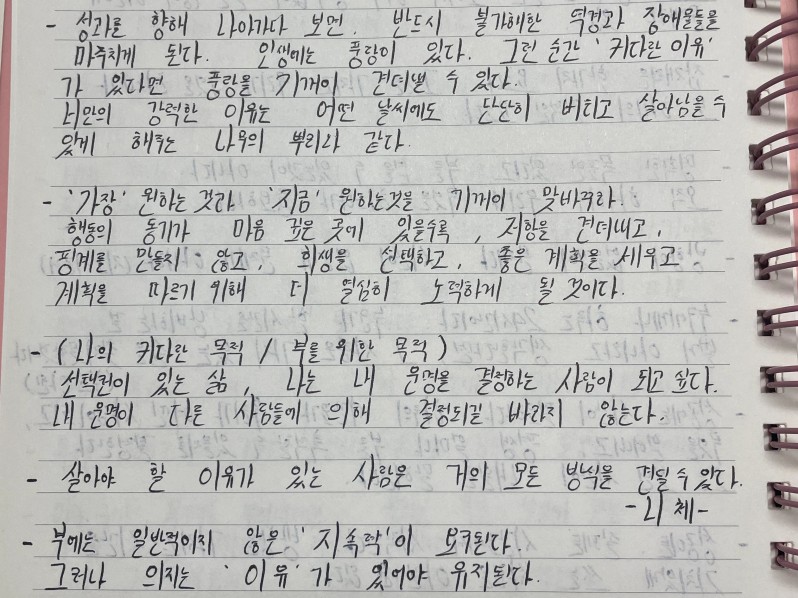 - 성과를 향해 나아가다 보면, 반드시 불가해한 역경과 장애물들을
마주치게 된다. 인생에는 풍랑이 있다. 그런 순간 '커다란 이유'
가 있다면 풍랑을 기꺼이 견뎌낼 수 있다.
너만의 강력한 이유는 어떤 날씨에도 단단히 버티고 살아남을 수
있게 해주는 나무의 뿌리와 같다.
- '가장' 원하는 것과 '지금' 원하는 것을 기꺼이 맞바꾸라.
행동의 동기가 마음 깊은 곳에 있을수록, 저항을 견뎌내고,
핑계를 만들지 않고, 희생을 선택하고, 좋은 계획을 세우고
계획을 따르기 위해 더 열심히 노력하게 될 것이다.
- (나의 커다란 목적 / 부를 위한 목적)
선택권이 있는 삶, 나는 내 운명을 결정하는 사람이 되고 싶다.
내 운명이 다른 사람들에 의해 결정되길 바라지 않는다.
- 살아야 할 이유가 있는 사람은 거의 모든 방식을 견딜 수 있다.
-니체-
- 부에는 일반적이지 않은 '지속력'이 요구된다.
그러나 의지는 '이유'가 있어야 유지된다.